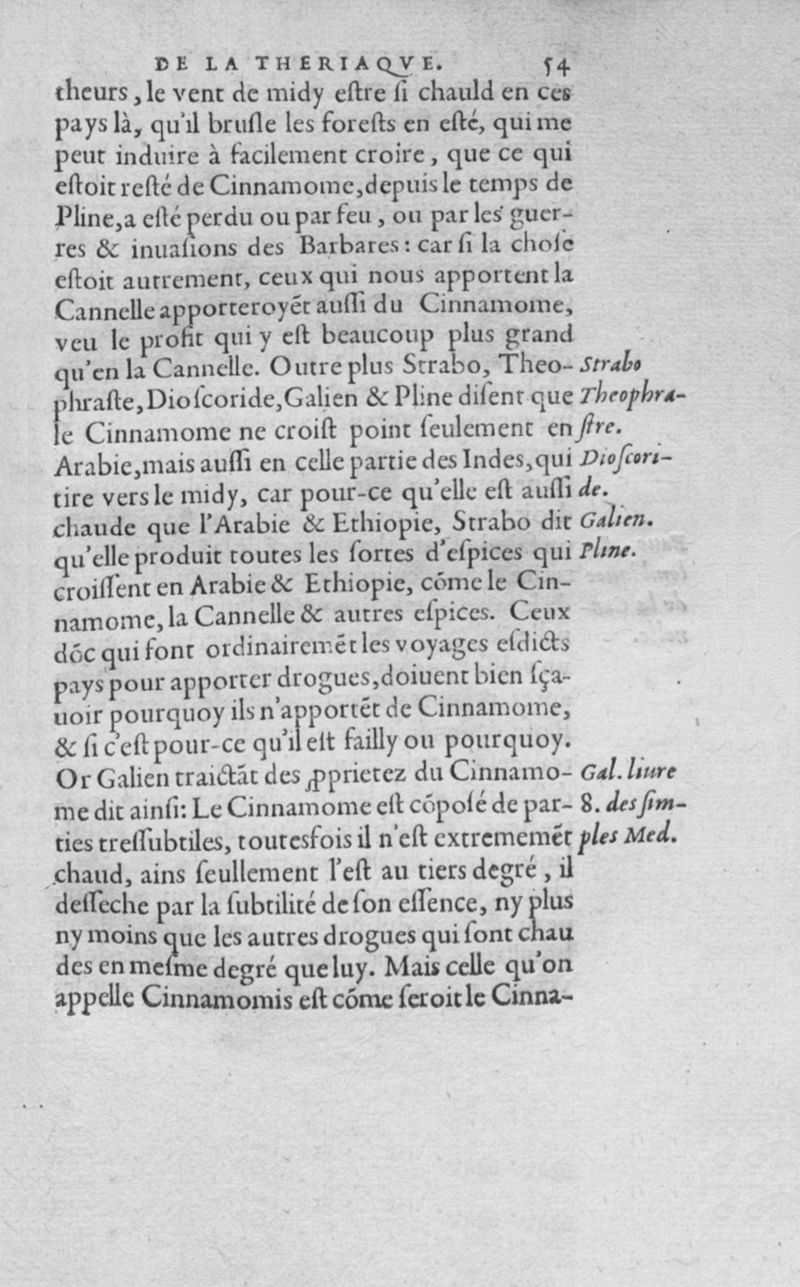 DE LA THERIAQVE. 54
theurs, le vent de midy eſtre ſi chauld en ces
pays là, qu'il bruſle les foreſts en eſté, qui me
peut induire à facilement croire, que ce qui
eſtoit reſté de Cinnamome, depuis le temps de
Pline, a eſté perdu ou par feu, ou par les guer-
res & inuaſions des Barbares: car ſi la choſe
eſtoit autrement, ceux qui nous apportent la
Cannelle apporteroyẽt auſſi du Cinnamome,
veu le profit qui y eſt beaucoup plus grand
qu'en la Cannelle. Outre plus Strabo, Theo-
phraſte, Dioſcoride, Galien & Pline diſent que
le Cinnamome ne croiſt point ſeulement en
Arabie, mais auſſi en celle partie des Indes, qui
tire vers le midy, car pour-ce qu'elle eſt auſſi
chaude que l'Arabie & Ethiopie, Strabo dit
qu'elle produit toutes les ſortes d'eſpices qui
croiſſent en Arabie & Ethiopie, cõme le Cin-
namome, la Cannelle & autres eſpices. Ceux
dõc qui font ordinairemẽt les voyages eſdicts
pays pour apporter drogues, doiuent bien ſça-
uoir pourquoy ils n'apportẽt de Cinnamome,
& ſi c'eſt pour-ce qu'il eſt failly ou pourquoy.
Or Galien traictãt des ꝓprietez du Cinnamo-
me dit ainſi: Le Cinnamome eſt cõpoſé de par-
ties treſſubtiles, toutesfois il n'eſt extrememẽt
chaud, ains ſeullement l'eſt au tiers degré, il
deſſeche par la ſubtilité de ſon eſſence, ny plus
ny moins que les autres drogues qui ſont chau
des en meſme degré que luy. Mais celle qu'on
appelle Cinnamomis eſt cõme ſeroit le Cinna-
Strabo
Theophra-
ſtre.
Dioſcori-
de.
Galien.
Pline.
Gal. liure
8. des ſim-
ples Med.